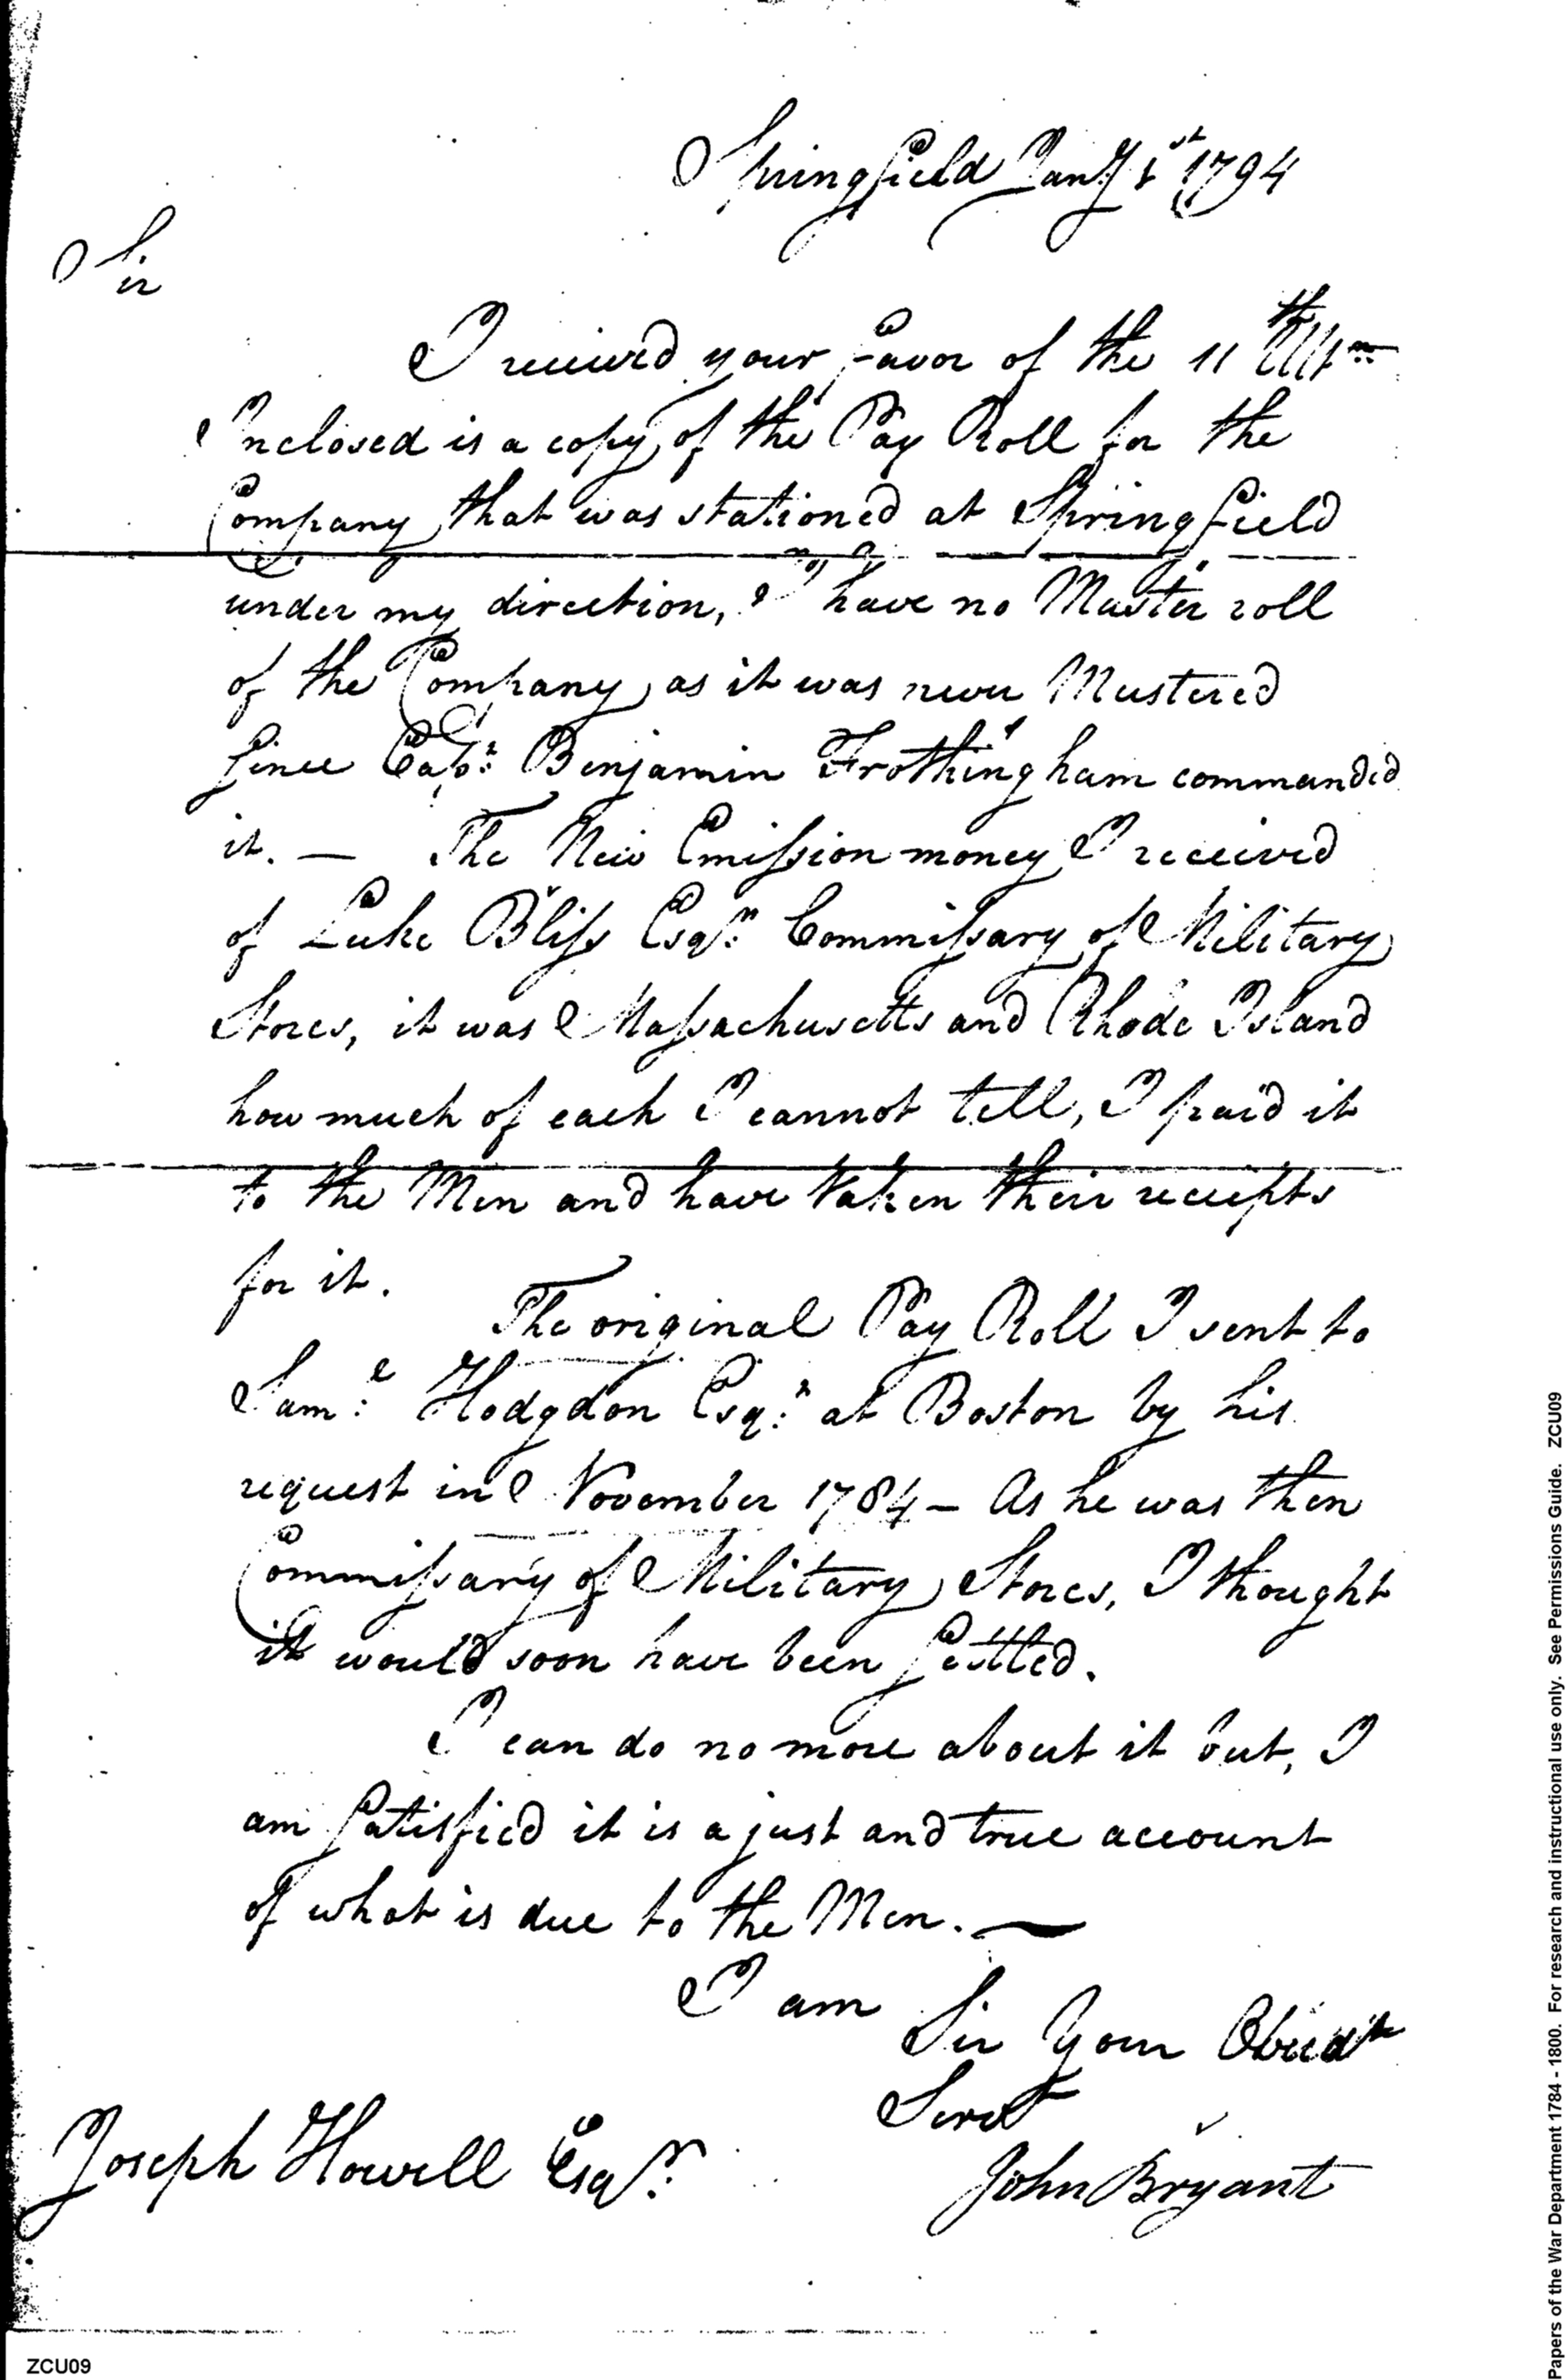 Springfield Jany 1st 1794
Sir
I received your favor of the 11th Ultm
Inclosed is a copy of the Pay Roll for the
Company that was stationed at Springfield
under my direction, I have no Muster roll
of the Company, as it was never Mustered
since Capt: Benjamin Frothingham commanded
it. — The New Emission money I received
of Luke Bliss Esqr: Commissary of Military
Stores, it was Massachusetts and Rhode Island
how much of each I cannot tell, I paid it
to the Men and have taken their receipts
for it.
The original Pay Roll I sent to
Saml: Hodgdon Esqr: at Boston by his
request in November 1784 — As he was then
Commissary of Military Stores, I thought
it would soon have been settled.
I can do no more about it but, I
am satisfied it is a just and true account
of what is due to the Men. —
I am
Sir Your Obedt
Servt
John Bryant
Joseph Howell Esqr:
ZCU09
Papers of the War Department 1784 - 1800. For research and instructional use only. See Permissions Guide. ZCU09